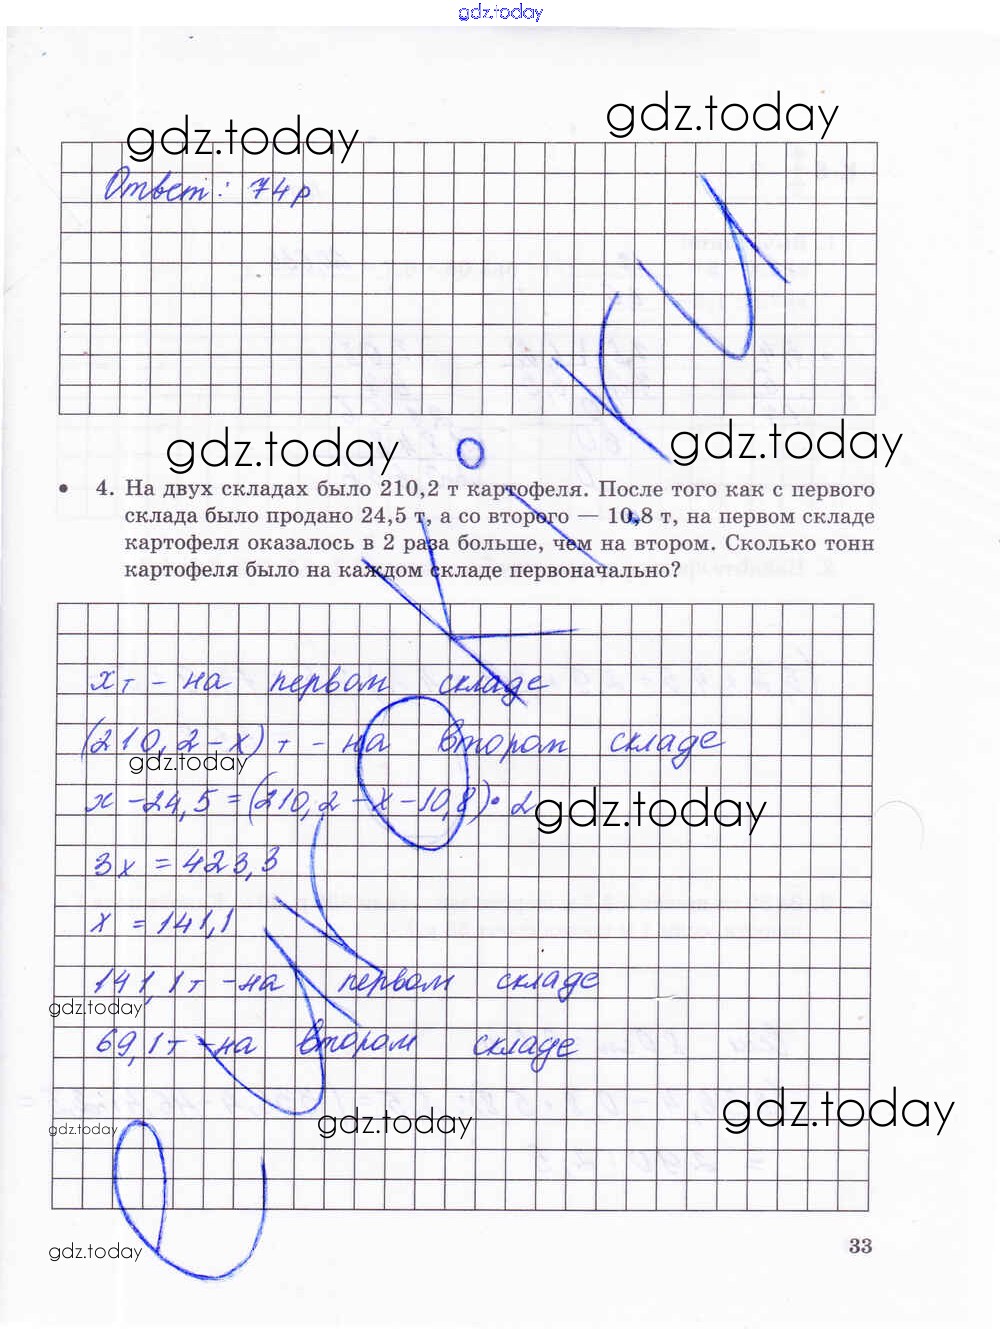 gdz.today
gdz.today
gdz.today
Ответ: 74р
gdz.today
gdz.today
• 4. На двух складах было 210,2 т картофеля. После того как с первого
склада было продано 24,5 т, а со второго — 10,8 т, на первом складе
картофеля оказалось в 2 раза больше, чем на втором. Сколько тонн
картофеля было на каждом складе первоначально?
хт - на первом складе
(210,2-х) т - на втором складе
gdz.today
х -24,5=(210,2-х-10,8)·2
gdz.today
3х = 423,3
х = 141,1
141,1т -на первом складе
gdz.today
69,1т -на втором складе
gdz.today
gdz.today
gdz.today
33
gdz.today